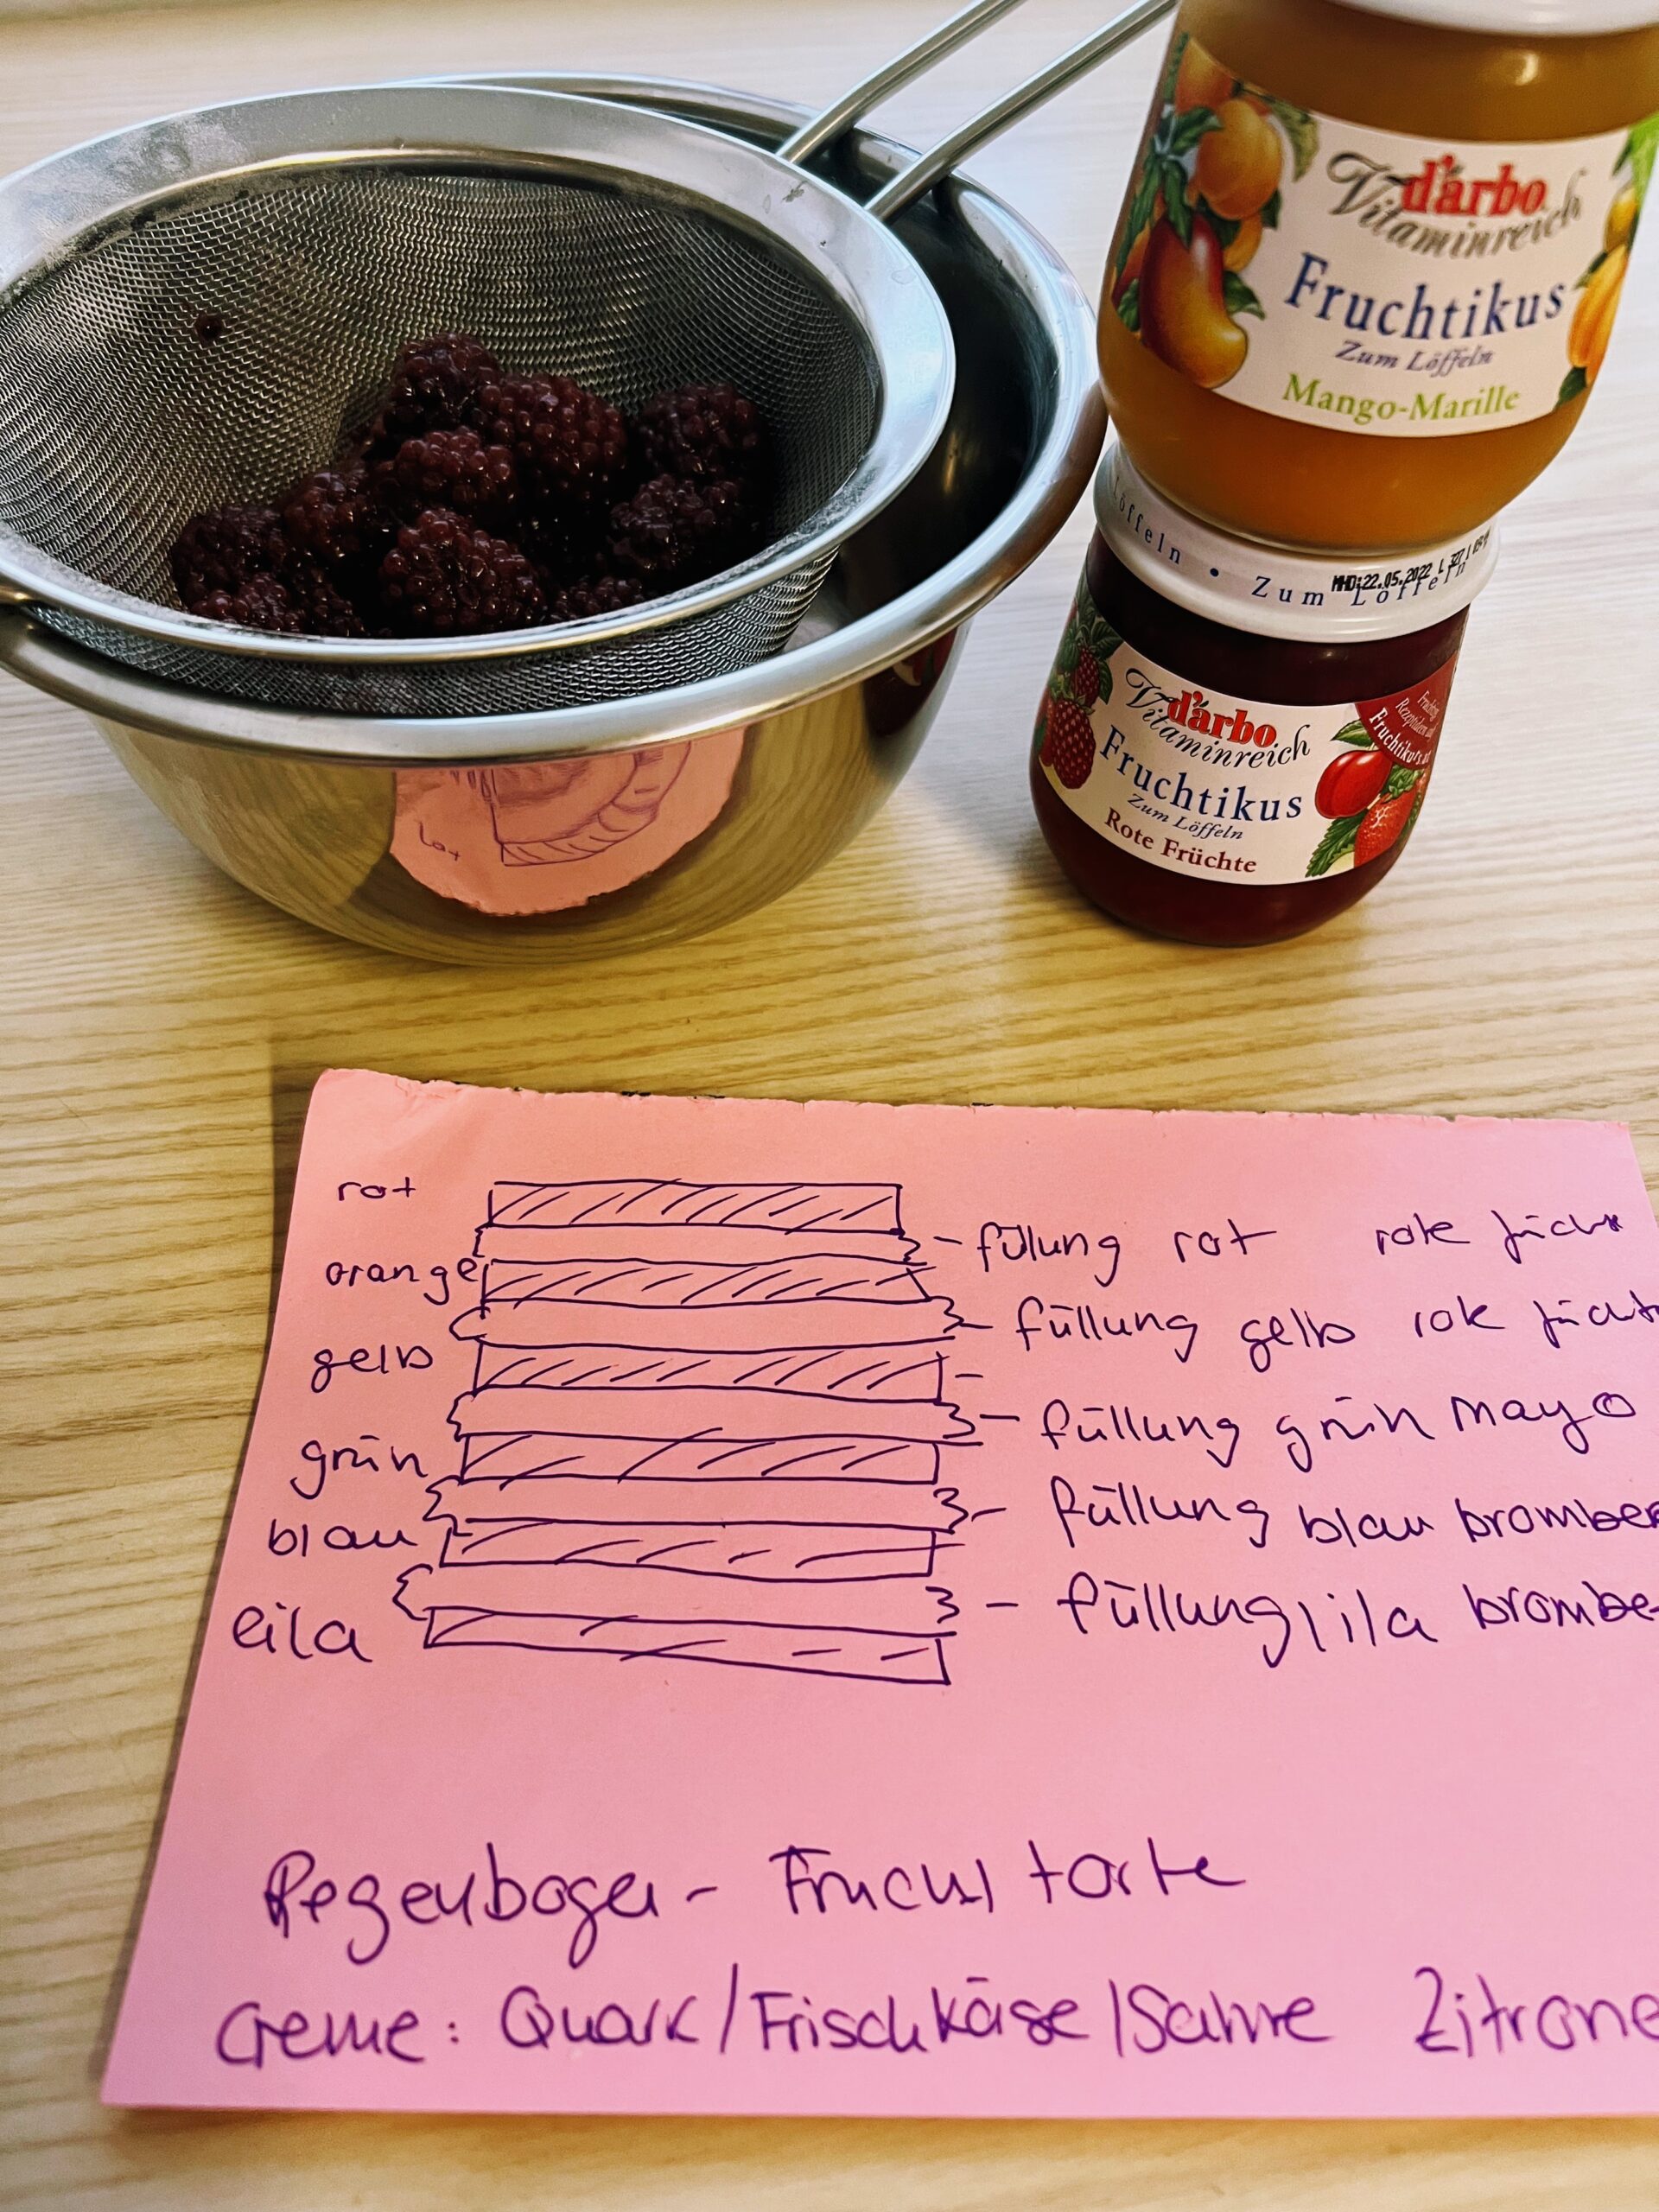 d'arbo
Vitaminreich
Fruchtikus
Zum Löffeln
Mango-Marille
Löffeln • Zum Löffeln
MHD:22.05.2022 L
d'arbo
Vitaminreich
Fruchtikus
Zum Löffeln
Rote Früchte
Fruchtikus
rot
orange
gelb
grün
blau
lila
füllung rot rote
füllung gelb
füllung grün mayo
füllung blau brombee
füllung lila brombe
Regenbogen - Frucht torte
Creme: Quark/Frischkäse/Sahne Zitrone